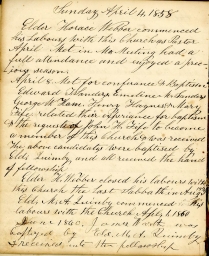 Sunday April 4, 1858.
Elder Horace Webber commenced
his labours with this Church as Pastor
April Met in Meeting had a
full attendance and enjoyed a prec-
ious season.
April 8. Met for conference & Baptism
Edward Standers Emeline M. Sanders
George W. Haines Henry Haynes & Mary
Fife, related their experiance for baptism
& the request of John H. Fife to become
a member of this Church & was received
The above candidates were baptised by
Eld. Quimby, and all received the hand
of fellowship
Elder H. Webber closed his labours with
this Church the last Sabbath in
Eld. M. A. Quimby commenced his
labours with the Church April 1, 1860
June 1860. was
baptized by Eld. M. A. Quimby
& received into the fellowship